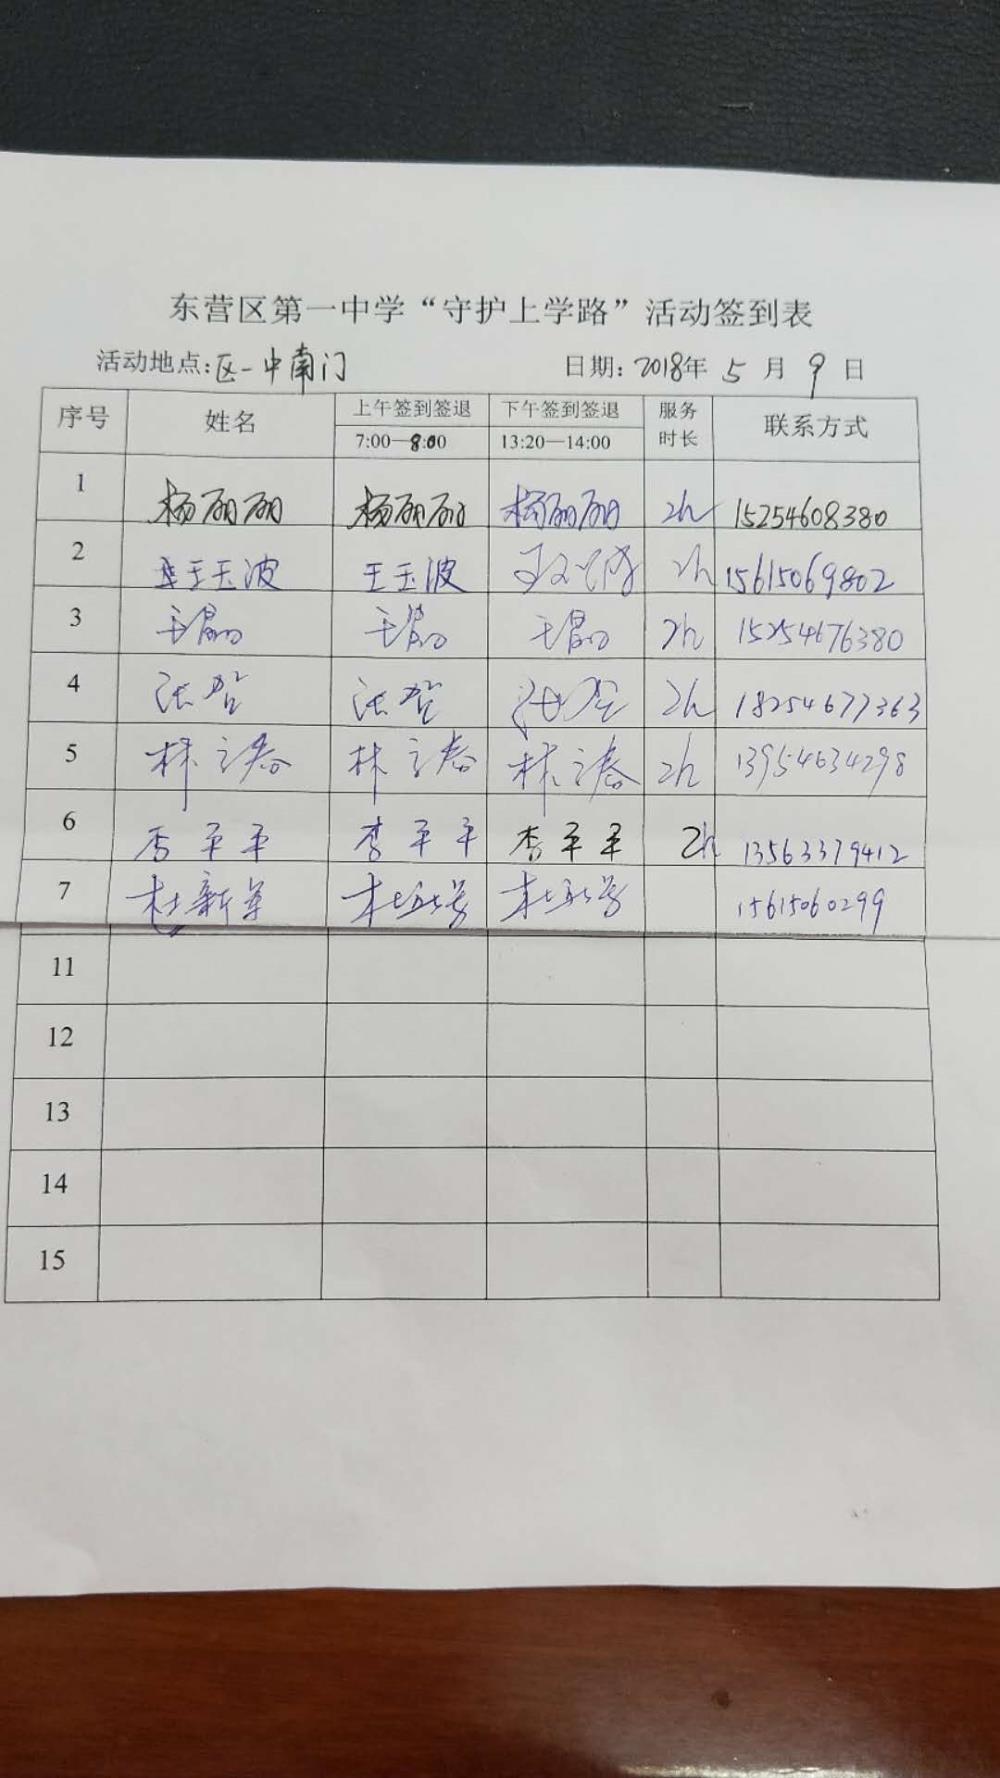 东营区第一中学“守护上学路”活动签到表
活动地点:区一中南门 日期:2018年 5 月 9 日
序号 姓名 上午签到签退 下午签到签退 服务时长 联系方式
7:00—8:00 13:20—14:00
1 杨丽丽 杨丽丽 杨丽丽 2h 15254608380
2 王玉波 王玉波 2h 15615069802
3 2h 15254676380
4 2h 18254677363
5 林 林 林 2h 13954634298
6 李平平 李平平 李平平 2h 13563379412
7 杜新军 15615060299
11
12
13
14
15